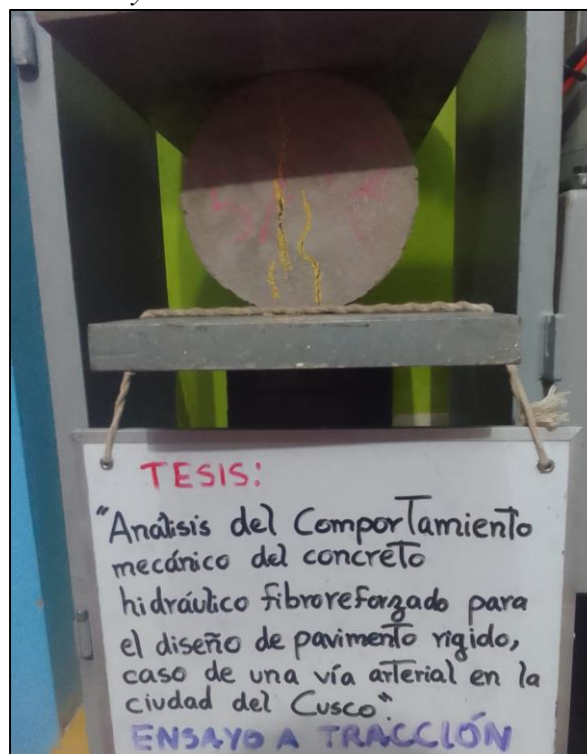 TESIS:
"Analisis del Comportamiento
mecánico del concreto
hidráulico fibroreforzado para
el diseño de pavimento rigido,
caso de una vía arterial en la
ciudad del Cusco".
ENSAYO A TRACCIÓN